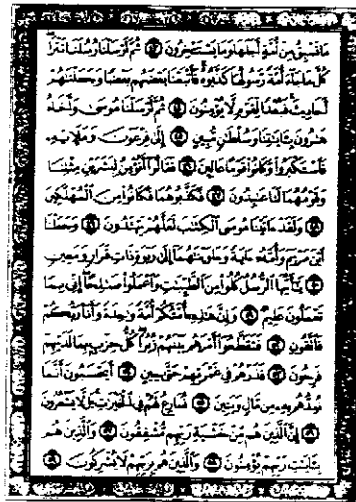 مَا تَسْبِقُ مِنْ أُمَّةٍ أَجَلَهَا وَمَا يَسْتَـْٔخِرُونَ ﴿٤٣﴾ ثُمَّ أَرْسَلْنَا رُسُلَنَا تَتْرَا
كُلَّ مَا جَآءَ أُمَّةً رَّسُولُهَا كَذَّبُوهُ فَأَتْبَعْنَا بَعْضَهُم بَعْضًا وَجَعَلْنَٰهُمْ
أَحَادِيثَ فَبُعْدًا لِّقَوْمٍ لَّا يُؤْمِنُونَ ﴿٤٤﴾ ثُمَّ أَرْسَلْنَا مُوسَىٰ وَأَخَاهُ
هَٰرُونَ بِـَٔايَٰتِنَا وَسُلْطَٰنٍ مُّبِينٍ ﴿٤٥﴾ إِلَىٰ فِرْعَوْنَ وَمَلَإِيهِۦ
فَٱسْتَكْبَرُوا۟ وَكَانُوا۟ قَوْمًا عَالِينَ ﴿٤٦﴾ فَقَالُوٓا۟ أَنُؤْمِنُ لِبَشَرَيْنِ مِثْلِنَا
وَقَوْمُهُمَا لَنَا عَٰبِدُونَ ﴿٤٧﴾ فَكَذَّبُوهُمَا فَكَانُوا۟ مِنَ ٱلْمُهْلَكِينَ
﴿٤٨﴾ وَلَقَدْ ءَاتَيْنَا مُوسَى ٱلْكِتَٰبَ لَعَلَّهُمْ يَهْتَدُونَ ﴿٤٩﴾ وَجَعَلْنَا
ٱبْنَ مَرْيَمَ وَأُمَّهُۥٓ ءَايَةً وَءَاوَيْنَٰهُمَآ إِلَىٰ رَبْوَةٍ ذَاتِ قَرَارٍ وَمَعِينٍ
﴿٥٠﴾ يَٰٓأَيُّهَا ٱلرُّسُلُ كُلُوا۟ مِنَ ٱلطَّيِّبَٰتِ وَٱعْمَلُوا۟ صَٰلِحًا إِنِّى بِمَا
تَعْمَلُونَ عَلِيمٌ ﴿٥١﴾ وَإِنَّ هَٰذِهِۦٓ أُمَّتُكُمْ أُمَّةً وَٰحِدَةً وَأَنَا۠ رَبُّكُمْ
فَٱتَّقُونِ ﴿٥٢﴾ فَتَقَطَّعُوٓا۟ أَمْرَهُم بَيْنَهُمْ زُبُرًا كُلُّ حِزْبٍۭ بِمَا لَدَيْهِمْ
فَرِحُونَ ﴿٥٣﴾ فَذَرْهُمْ فِى غَمْرَتِهِمْ حَتَّىٰ حِينٍ ﴿٥٤﴾ أَيَحْسَبُونَ أَنَّمَا
نُمِدُّهُم بِهِۦ مِن مَّالٍ وَبَنِينَ ﴿٥٥﴾ نُسَارِعُ لَهُمْ فِى ٱلْخَيْرَٰتِ بَل لَّا يَشْعُرُونَ
﴿٥٦﴾ إِنَّ ٱلَّذِينَ هُم مِّنْ خَشْيَةِ رَبِّهِم مُّشْفِقُونَ ﴿٥٧﴾ وَٱلَّذِينَ هُم
بِـَٔايَٰتِ رَبِّهِمْ يُؤْمِنُونَ ﴿٥٨﴾ وَٱلَّذِينَ هُم بِرَبِّهِمْ لَا يُشْرِكُونَ ﴿٥٩﴾